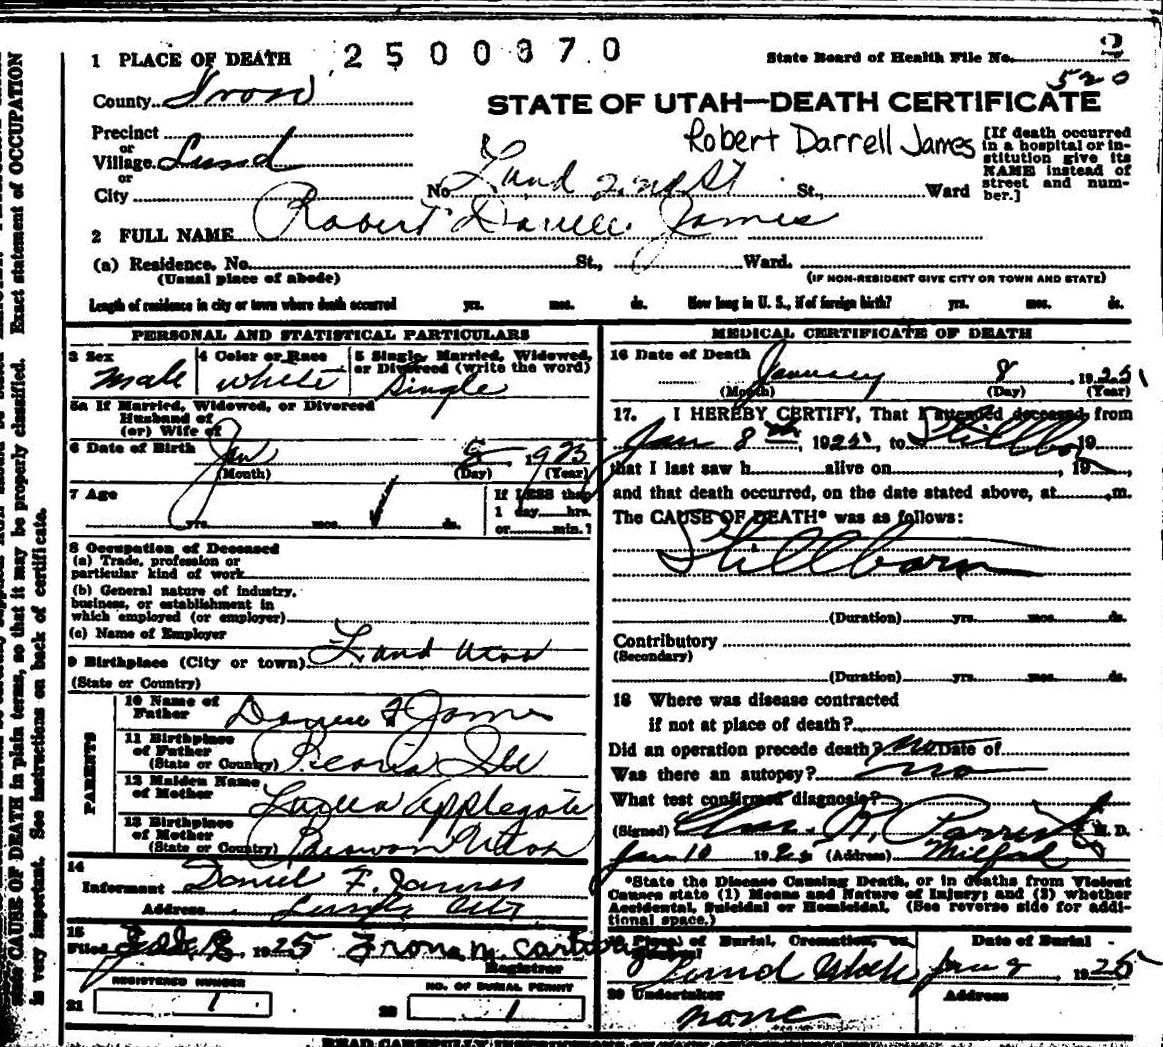 2500370
2
1 PLACE OF DEATH
State Board of Health File No.
520
County Iron
STATE OF UTAH—DEATH CERTIFICATE
Precinct
or
Village Lund
or
City
Robert Darrell James
[If death occurred
in a hospital or in-
stitution give its
NAME instead of
street and num-
ber.]
No. Lund St., Ward
2 FULL NAME Robert Darrell James
(a) Residence, No. St., Ward.
(Usual place of abode) (IF NON-RESIDENT GIVE CITY OR TOWN AND STATE)
Length of residence in city or town where death occurred yrs. mos. ds. How long in U. S., if of foreign birth? yrs. mos. ds.
PERSONAL AND STATISTICAL PARTICULARS
3 Sex 4 Color or Race 5 Single, Married, Widowed,
or Divorced (write the word)
Male White Single
5a If Married, Widowed, or Divorced
Husband of
(or) Wife of
6 Date of Birth Jan 8
(Month) (Day) (Year)
7 Age
If LESS than
1 day hrs.
or min.?
yrs. mos. ds.
8 Occupation of Deceased
(a) Trade, profession or
particular kind of work
(b) General nature of industry,
business, or establishment in
which employed (or employer)
(c) Name of Employer
9 Birthplace (City or town) Lund Utah
(State or Country)
PARENTS
10 Name of
Father F James
11 Birthplace
of Father
(State or Country) Peoria Ill
12 Maiden Name
of Mother Luella Applegate
13 Birthplace
of Mother
(State or Country) Parowan Utah
14
Informant Daniel F. James
Address City
15
Filed Feb. 1925
Registrar
REGISTERED NUMBER
21 1
NO. OF BURIAL PERMIT
22 1
MEDICAL CERTIFICATE OF DEATH
16 Date of Death January 8, 1925
(Month) (Day) (Year)
17. I HEREBY CERTIFY, That I attended deceased from
Jan 8, 1925, to Stillborn 19
that I last saw h alive on, 19,
and that death occurred, on the date stated above, at .m.
The CAUSE OF DEATH* was as follows:
Stillborn
(Duration) yrs. mos. ds.
Contributory
(Secondary)
(Duration) yrs. mos. ds.
18 Where was disease contracted
if not at place of death?
Did an operation precede death? no Date of
Was there an autopsy? no
What test confirmed diagnosis?
(Signed) Parrish M. D.
Jan 10 192 (Address) Milford
*State the Disease Causing Death, or in deaths from Violent
Causes state (1) Means and Nature of Injury; and (2) whether
Accidental, Suicidal or Homicidal. (See reverse side for addi-
tional space.)
Place of Burial, Cremation, or Date of Burial
Lund Utah Jan 9 1925
20 Undertaker Address
none
CAUSE OF DEATH in plain terms, so that it may be properly classified. Exact statement of OCCUPATION
is very important. See instructions on back of certificate.